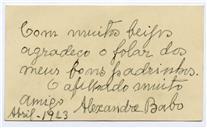 Com muitos beijos
agradeço o folar dos
meus bons padrinhos.
O afilhado muito
amigo Alexandre Babo
Abril - 1923